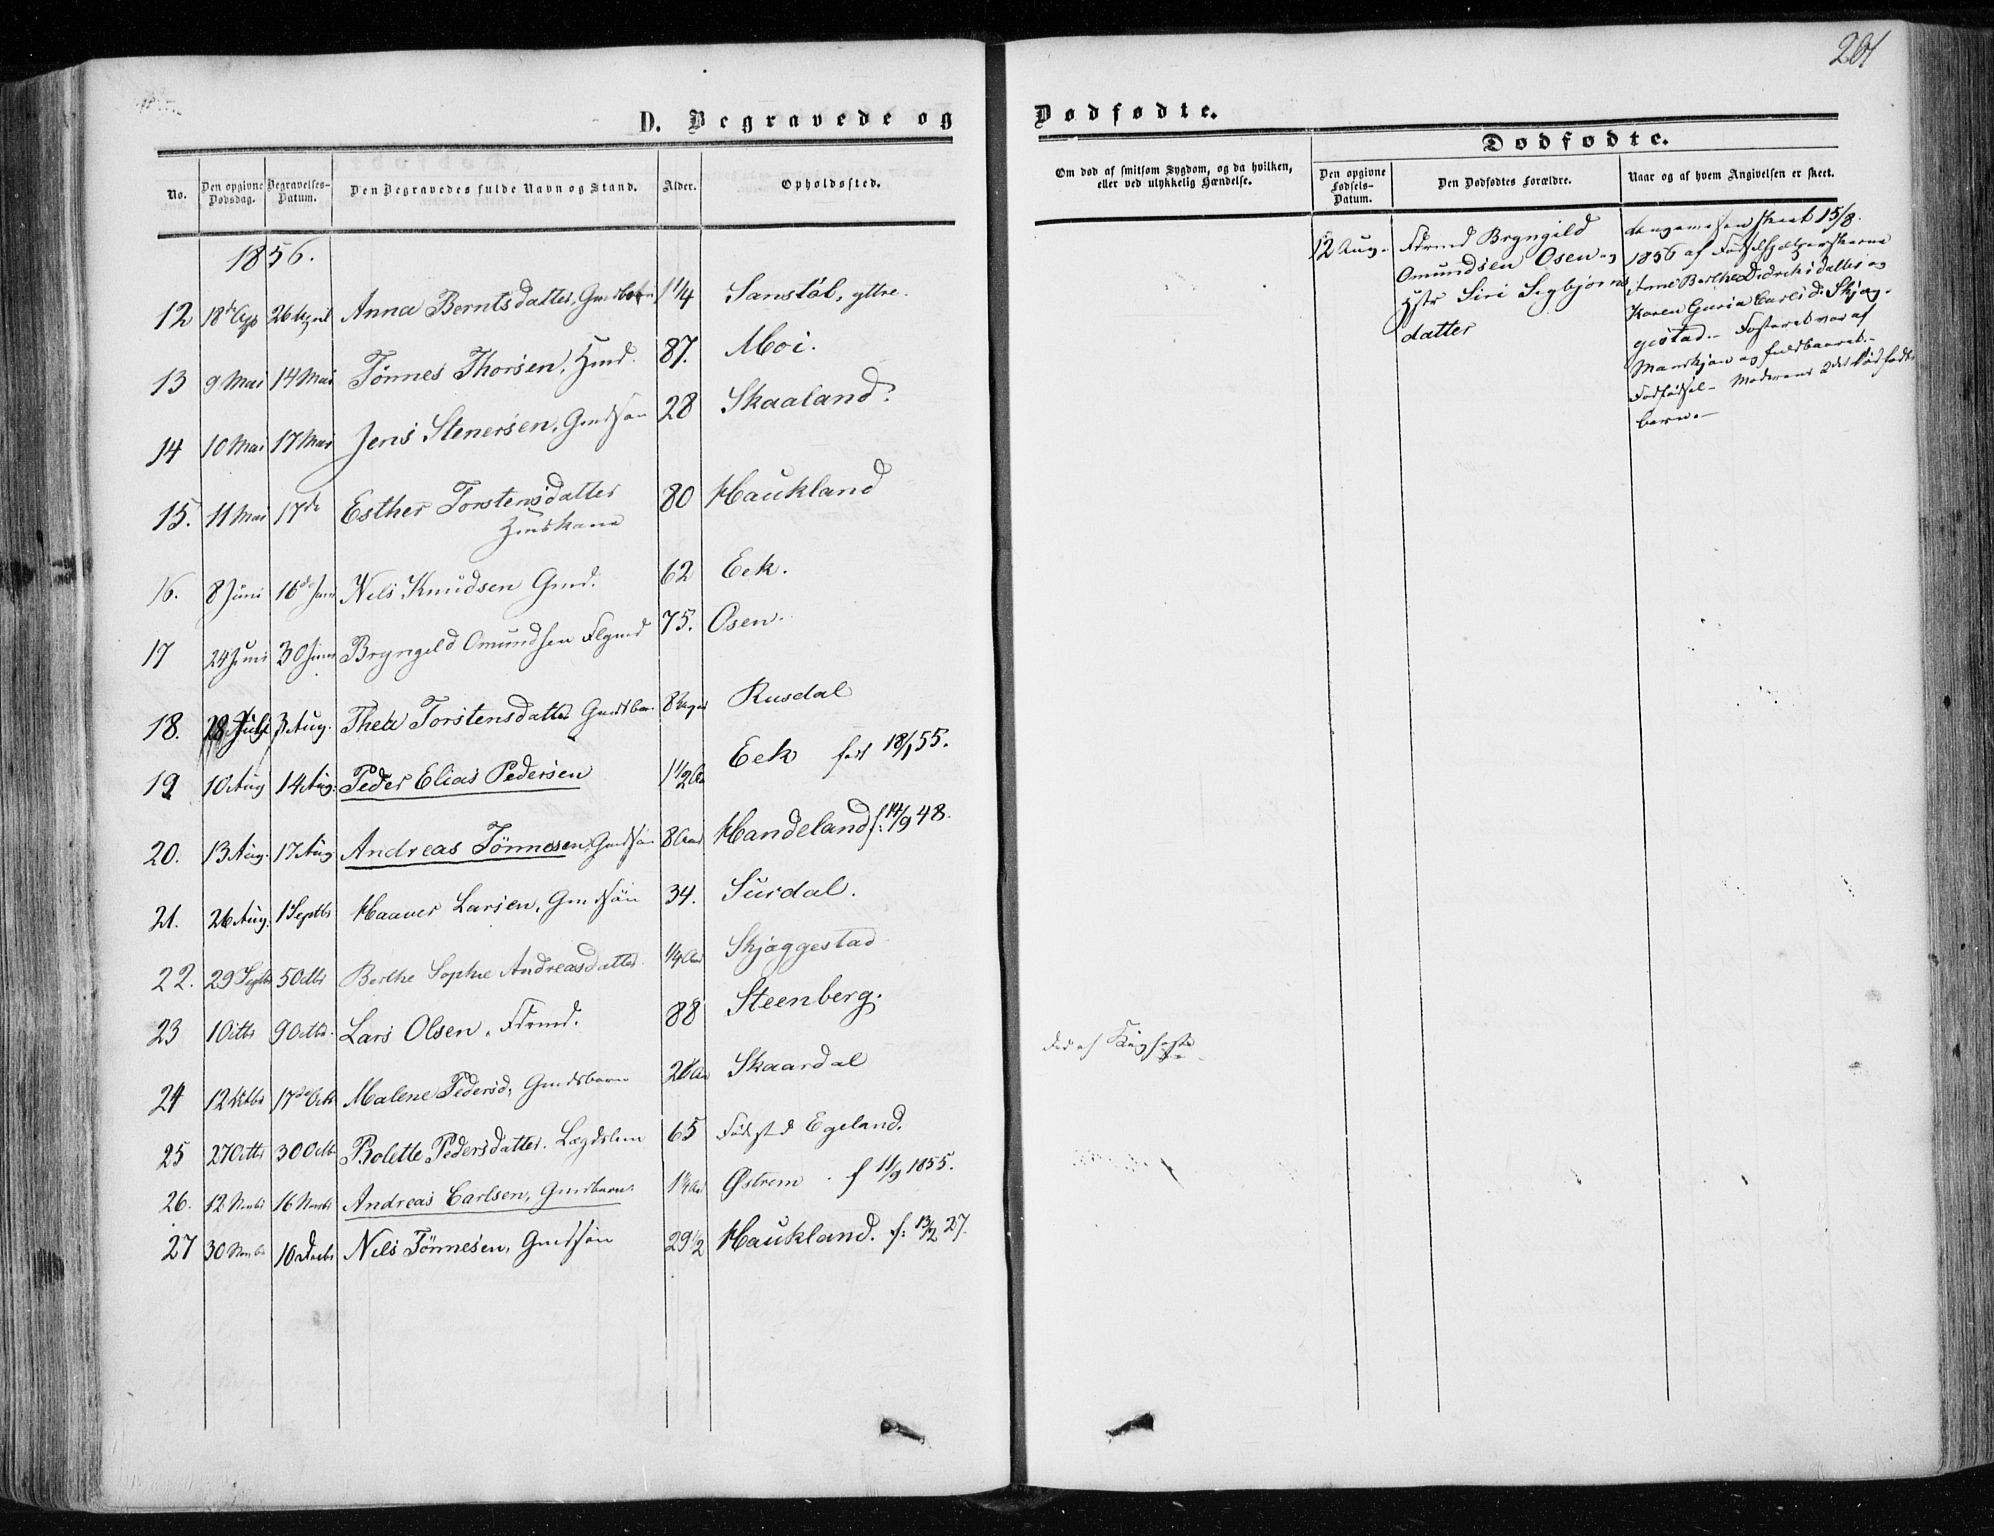 201
D. Begravede og Dødfødte.
Dødfødte.
No. Den opgivne Dødsdag. Begravelses-Datum. Den Begravedes fulde Navn og Stand. Alder. Opholdssted.
Om død af smitsom Sygdom, og da hvilken, eller ved ulykkelig Hændelse.
Den opgivne Fødsels-Datum. Den Dødfødtes Forældre. Naar og af hvem Angivelsen er skeet.
1856.
12 26 April Anna Berntsdatter, 1 1/4 Sanstøl, yttre.
13 9 Mai 14 Mai Tönnes Thorsen, Gmd. 87. Moi.
14 10 Mai 17 Mai Jens Stenersen, Gmdsøn 28 Skaaland.
15. 11 Mai 17de Esther Torstensdatter 80 Haukland
Gmdskone
16. 8 Juni 16de Juni Nels Knudsen Gmd. 62 Eek.
17 24 Juni 30 Juni Bryngeld Omundsen 75. Osen.
18. 28 Juli 3 Aug. Thea Torstensdatter 8 Rusdal
19 10 Aug 14 Aug. Peder Elias Pedersen 1 1/2 Aar Eek født 18/1 55.
20. 13 Aug. 17 Aug Andreas Tönnesen, Gmdsøn 8 Aar Handeland f: 14/9 48.
21. 26 Aug. 1 Septbr Haaver Larsen, Gmdsøn 34. Surdal.
22. 29 Septbr 5 Octbr Berthe Sophie Andreasdatter 1/4 Aar Skjæggestad
23 1 Octbr 9 Octbr. Lars Olsen, 88 Steenberg.
24 12 Octbr 17de Octbr Malene Pedersd, Gmdsbarn 2 Aar Skaardal
død af Kighoste
25 27 Octbr 30 Octbr Bolette Pedersdatter. Lægdslem 65 Fødested Egeland.
26. 12 Novbr 16 Novbr Andreas Carlsen, Gmdbarn 1 1/4 Aar Østrem. f 11/9 1855.
27 30 Novbr 10 Decbr Nels Tönnesen, Gmdsøn 29 1/2 Haukland. f: 13/2 27.
12 Aug. Bryngild
Omundsen Osen og
Hstr Siri Sigbjørns
datter
skeet 15/8
1856 af Fødselshjælperskerne
Anne Berthe Didriksdatter og
Karen Guria Carlsd: Skjæg-
gestad. Fosteret var af
Mandkjøn og fuldbaaret.
Moderens 2det dødfødte
barn.